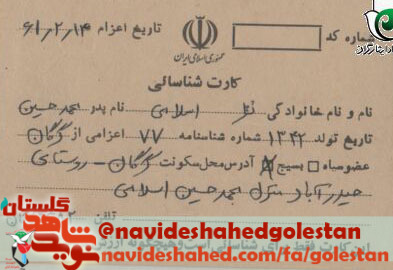 شماره کد
تاریخ اعزام ۶۱/۲/۱۴
جمهوری اسلامی ایران
کارت شناسائی
نام و نام خانوادگی اسلامی نام پدر محمد حسین
تاریخ تولد ۱۳۴۲ شماره شناسنامه ۷۷ اعزامی از گرگان
عضو سپاه بسیج آدرس محل سکونت گرگان - روستای
حیدرآباد منزل محمد حسین اسلامی
تلفن
این کارت فقط برای شناسائی است و هیچگونه ارزش
گلستان
نوید شاهد
@navideshahedgolestan
www.navideshahed.com/fa/golestan